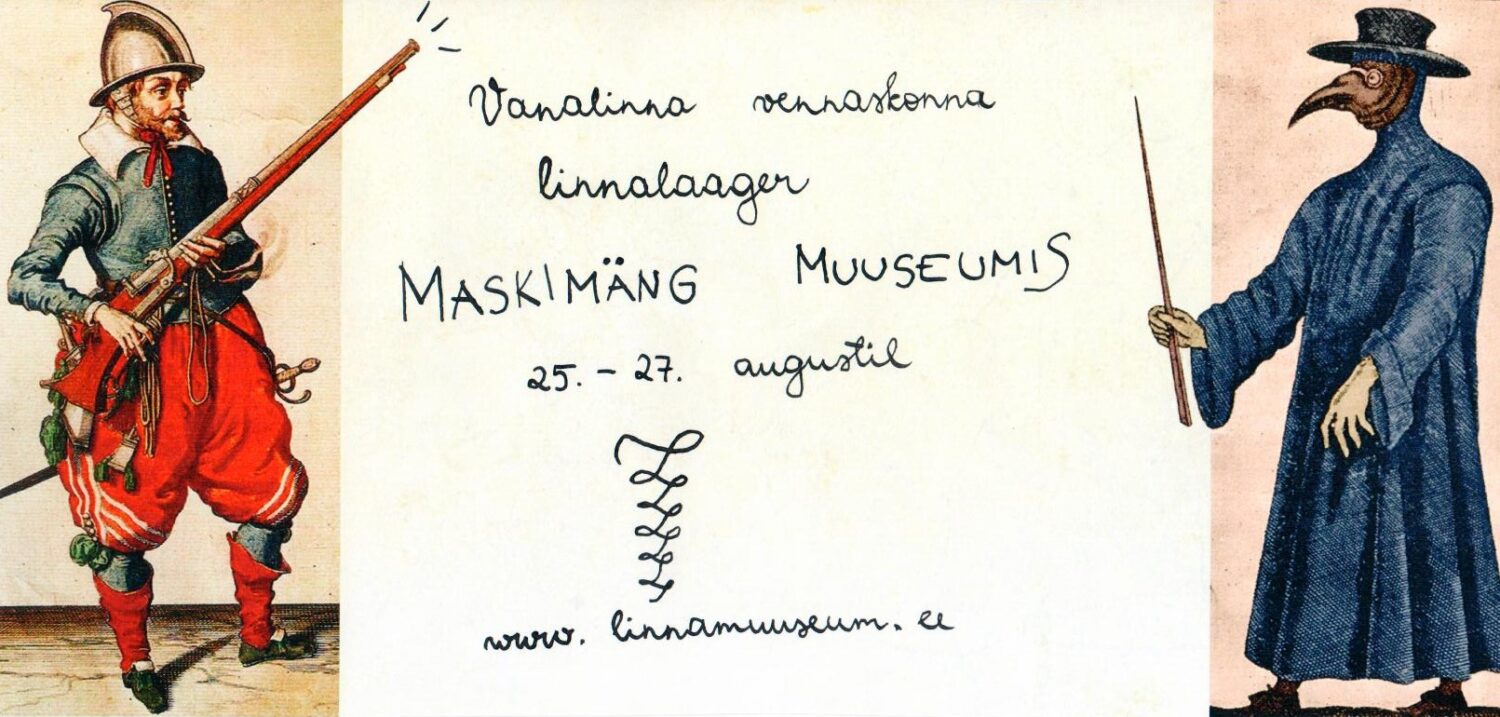 Vanalinna vennaskonna
linnalaager
MASKIMÄNG MUUSEUMIS
25. - 27. augustil
www.linnamuuseum.ee